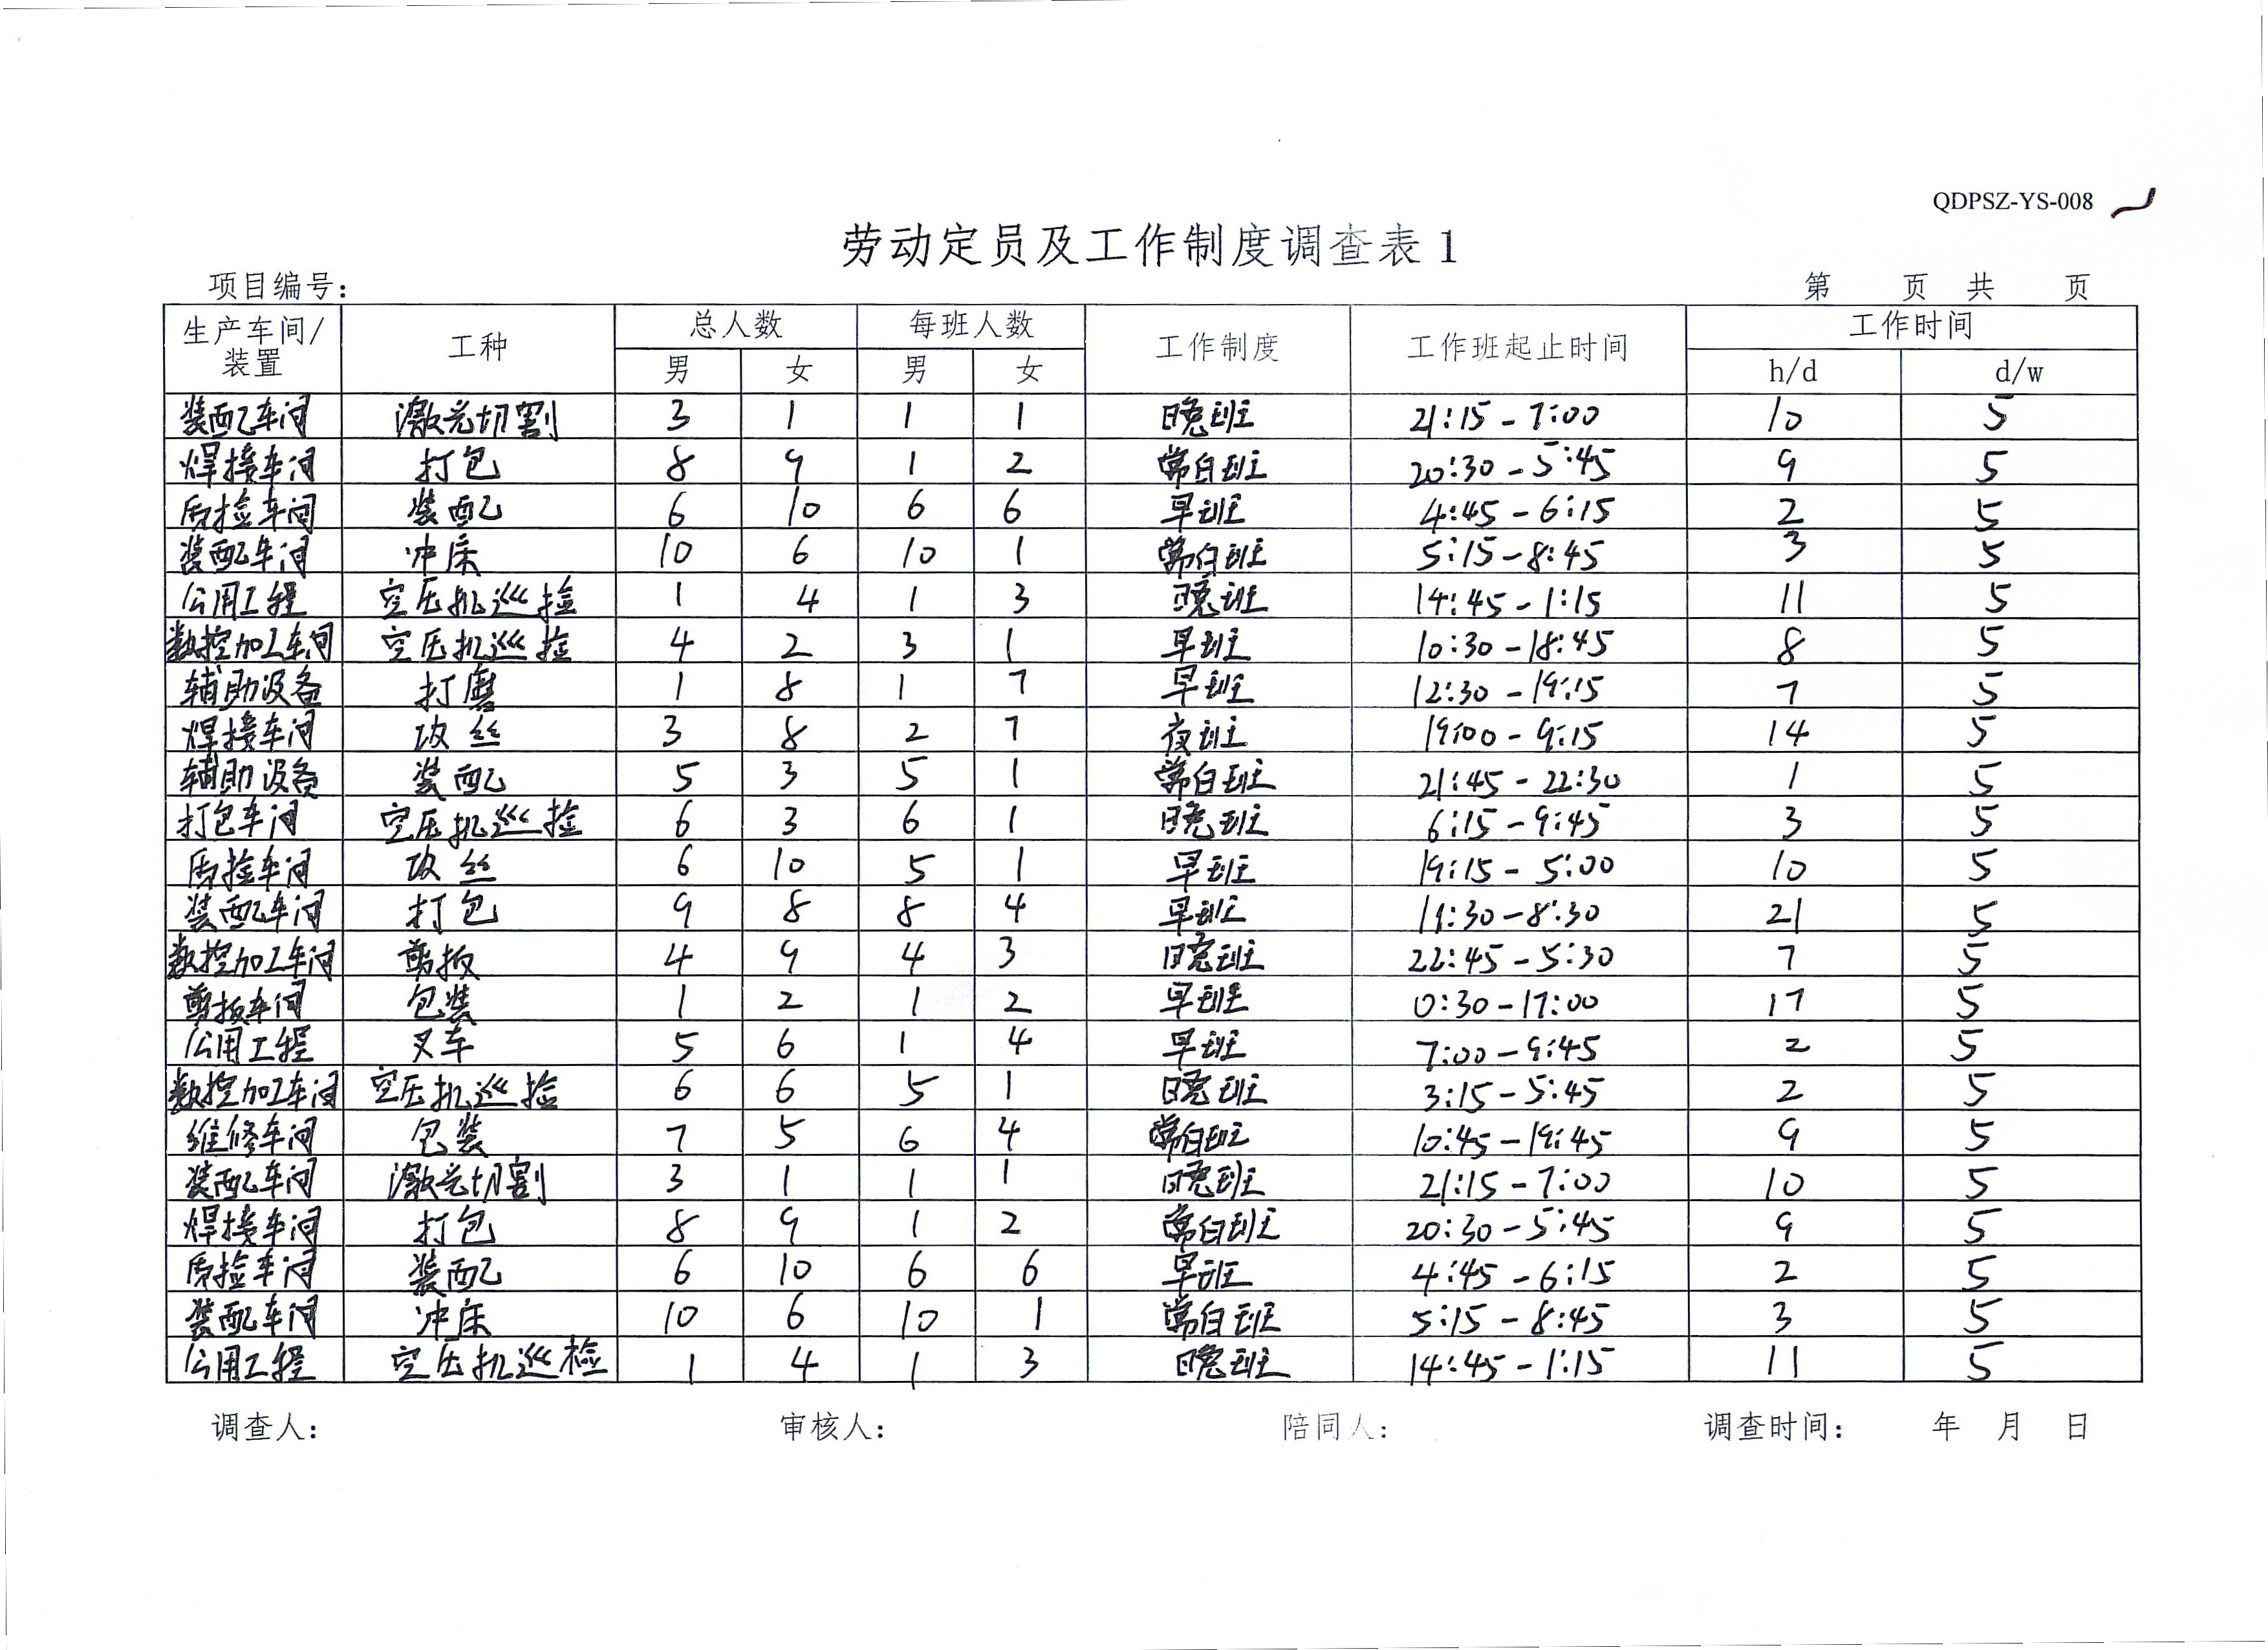 QDPSZ-YS-008
劳动定员及工作制度调查表1
项目编号： 第 页 共 页
生产车间/装置 工种 总人数 每班人数 工作制度 工作班起止时间 工作时间
男 女 男 女 h/d d/w
装配车间 激光切割 3 1 1 1 晚班 21:15-7:00 10 5
焊接车间 打包 8 9 1 2 常白班 20:30-5:45 9 5
质检车间 装配 6 10 6 6 早班 4:45-6:15 2 5
装配车间 冲床 10 6 10 1 常白班 5:15-8:45 3 5
公用工程 空压机巡检 1 4 1 3 晚班 14:45-1:15 11 5
数控加工车间 空压机巡检 4 2 3 1 早班 10:30-18:45 8 5
辅助设备 打磨 1 8 1 7 早班 12:30-19:15 7 5
焊接车间 攻丝 3 8 2 7 夜班 19:00-9:15 14 5
辅助设备 装配 5 3 5 1 常白班 21:45-22:30 1 5
打包车间 空压机巡检 6 3 6 1 晚班 6:15-9:45 3 5
质检车间 攻丝 6 10 5 1 早班 19:15-5:00 10 5
装配车间 打包 9 8 8 4 早班 11:30-8:30 21 5
数控加工车间 剪板 4 9 4 3 晚班 22:45-5:30 7 5
剪板车间 包装 1 2 1 2 早班 0:30-17:00 17 5
公用工程 叉车 5 6 1 4 早班 7:00-9:45 2 5
数控加工车间 空压机巡检 6 6 5 1 晚班 3:15-5:45 2 5
维修车间 包装 7 5 6 4 常白班 10:45-19:45 9 5
装配车间 激光切割 3 1 1 1 晚班 21:15-7:00 10 5
焊接车间 打包 8 9 1 2 常白班 20:30-5:45 9 5
质检车间 装配 6 10 6 6 早班 4:45-6:15 2 5
装配车间 冲床 10 6 10 1 常白班 5:15-8:45 3 5
公用工程 空压机巡检 1 4 1 3 晚班 14:45-1:15 11 5
调查人： 审核人： 陪同人： 调查时间： 年 月 日